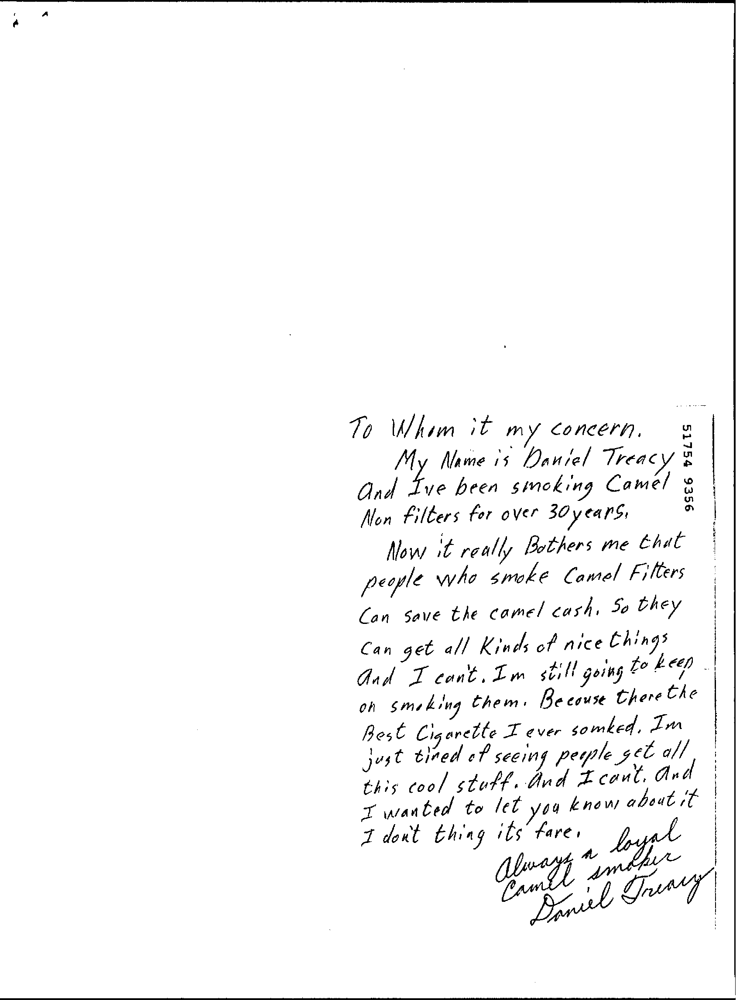 To Whom it my concern.
My Name is Daniel Treacy
And Ive been smoking Camel
Non filters for over 30 years.
Now it really Bothers me that
people who smoke Camel Filters
Can save the camel cash. So they
Can get all Kinds of nice things
And I can't. Im still going to keep
on smoking them. Because there the
Best Cigarette I ever somked. Im
just tired of seeing people get all
this cool stuff. And I can't. And
I wanted to let you know about it
I don't thing its fare.
Always a loyal
Camel smoker
Daniel Treacy
51754 9356